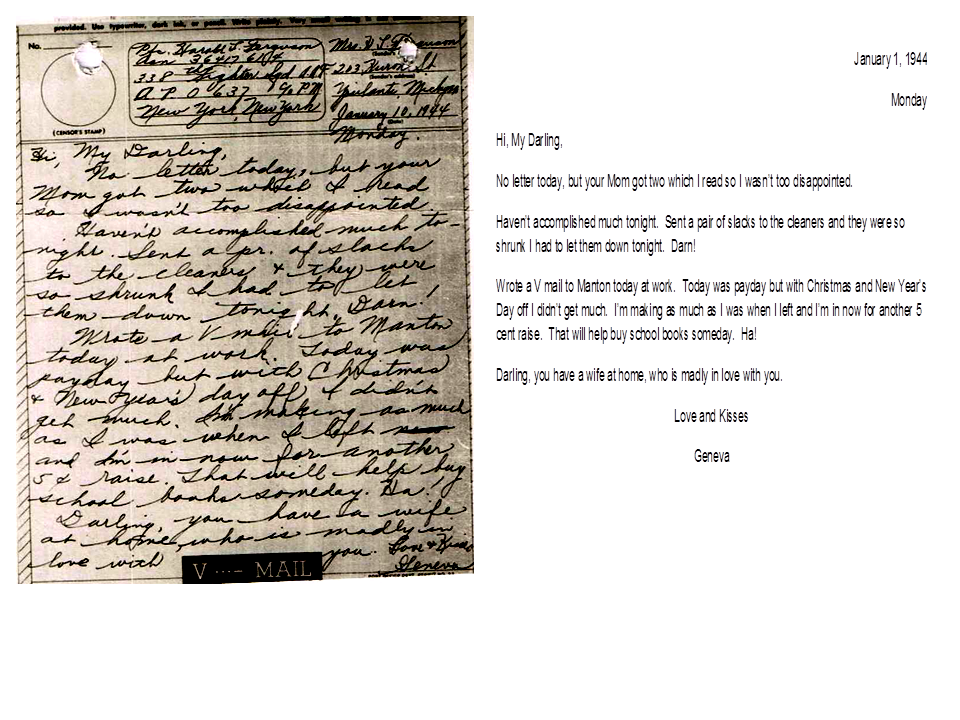 provided. Use typewriter, dark ink, or pencil. Write plainly. Very
No.
(CENSOR'S STAMP)
Pfc. Harold L. Ferguson
Asn 36417611
338th Fighter Sqd AAF
A P O 637 c/o P.M
New York, New York
Mrs. H L Ferguson
(Sender's name)
203 Huron St
(Sender's address)
Ypsilanti, Michigan
January 10, 1944
(Date)
Monday.
Hi, My Darling,
No letter today, but your
Mom got two which I read
so I wasn't too disappointed.
Haven't accomplished much to-
night. Sent a pr. of slacks
to the cleaners & they were
so shrunk I had to let
them down tonight. Darn!
Wrote a V mail to Manton
today at work. Today was
payday but with Christmas
& New Year's day off I didn't
get much. I'm making as much
as I was when I left
and I'm in now for another
5¢ raise. That will help buy
school books someday. Ha!
Darling, you have a wife
at home, who is madly in
love with you. Love & Kisses
Geneva
V ···- MAIL
January 1, 1944
Monday
Hi, My Darling,
No letter today, but your Mom got two which I read so I wasn't too disappointed.
Haven't accomplished much tonight. Sent a pair of slacks to the cleaners and they were so
shrunk I had to let them down tonight. Darn!
Wrote a V mail to Manton today at work. Today was payday but with Christmas and New Year's
Day off I didn't get much. I'm making as much as I was when I left and I'm in now for another 5
cent raise. That will help buy school books someday. Ha!
Darling, you have a wife at home, who is madly in love with you.
Love and Kisses
Geneva